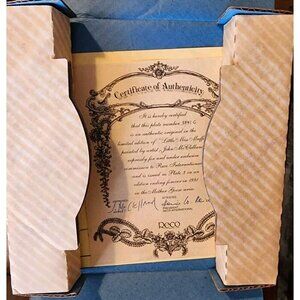 Certificate of Authenticity
It is hereby certified
that this plate number
is an authentic original in the
limited edition of "Little Miss Muffet"
painted by artist John McClelland
expressly for and under exclusive
commission to Reco International
and is issued as Plate 2 in an
edition ending forever in 1981
in the Mother Goose series
ATTESTED
RECO INTERNATIONAL
RECO